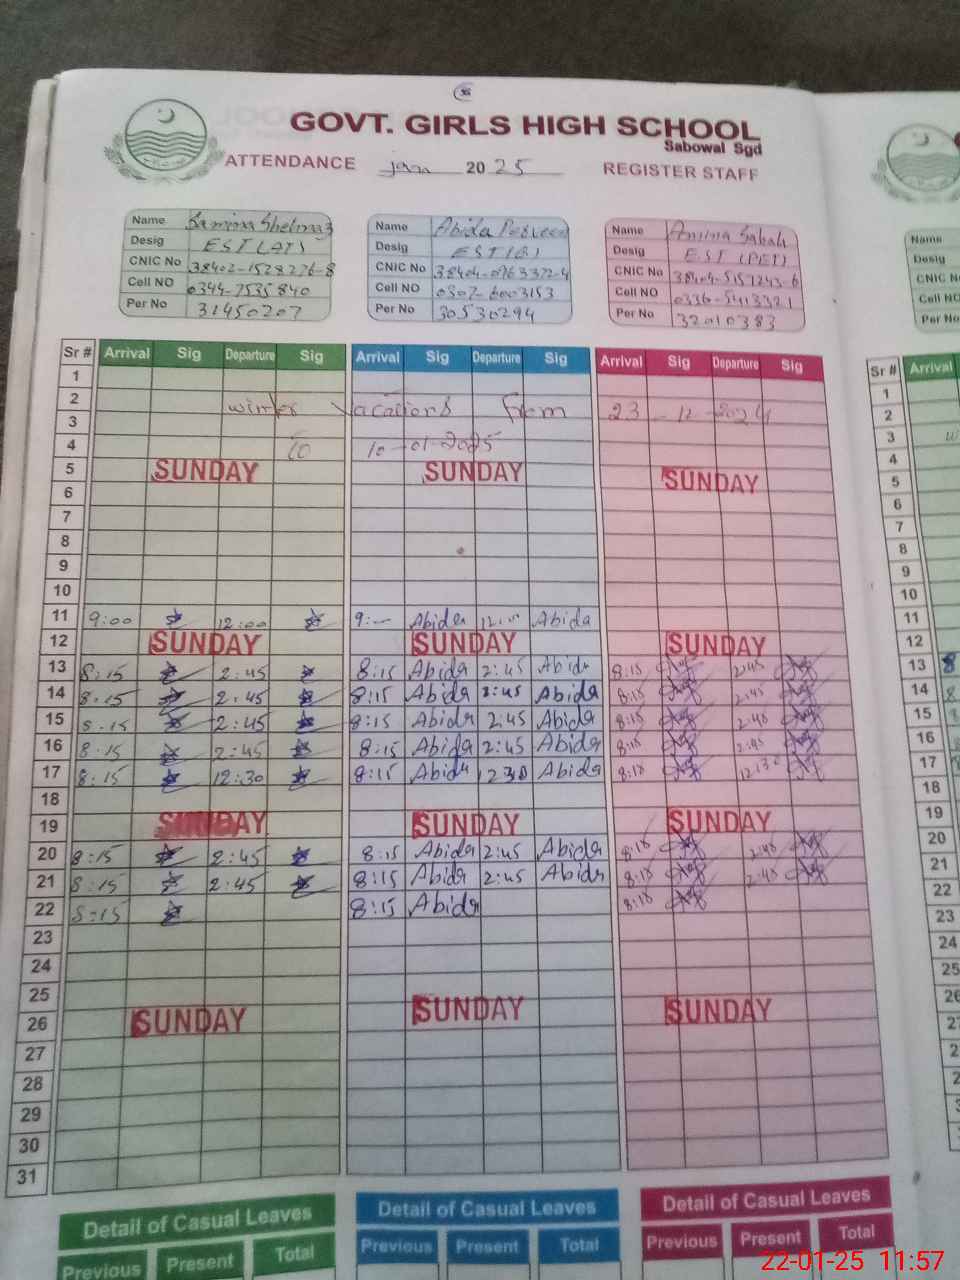 GOVT. GIRLS HIGH SCHOOL
Sabowal Sgd
ATTENDANCE Jan 2025 REGISTER STAFF
Name Samina Shehnaz Name Abida Perveen Name Amina Sabah Name
Desig EST (AT) Desig EST Desig EST (PET) Desig
CNIC No 38402-1528276-8 CNIC No 38404-0763372-4 CNIC No 38404-5157243-6 CNIC N
Cell NO 0344-7535840 Cell NO 0307-6003153 Cell NO 0336-5413321 Cell NO
Per No 31450207 Per No 30530294 Per No 32010383 Per No
Sr # Arrival Sig Departure Sig Arrival Sig Departure Sig Arrival Sig Departure Sig Sr # Arrival
1 1
2 winter vacations from 23-12-2024 2
3 3
4 10 10-01-2025 4
5 SUNDAY SUNDAY SUNDAY 5
6 6
7 7
8 8
9 9
10 10
11 9:00 12:00 9:— Abida 12:— Abida 11
12 SUNDAY SUNDAY SUNDAY 12
13 8:15 2:45 8:15 Abida 2:45 Abida 8:15 2:45 13 8
14 8:15 2:45 8:15 Abida 2:45 Abida 8:15 2:45 14 8
15 8:15 2:45 8:15 Abida 2:45 Abida 8:15 2:45 15
16 8:15 2:45 8:15 Abida 2:45 Abida 8:15 2:45 16
17 8:15 12:30 8:15 Abida 1230 Abida 8:15 12:30 17
18 18
19 SUNDAY SUNDAY SUNDAY 19
20 8:15 2:45 8:15 Abida 2:45 Abida 8:15 2:45 20
21 8:15 2:45 8:15 Abida 2:45 Abida 8:15 2:45 21
22 8:15 8:15 Abida 8:15 22
23 23
24 24
25 25
26 SUNDAY SUNDAY SUNDAY 26
27
28
29
30
31
Detail of Casual Leaves Detail of Casual Leaves Detail of Casual Leaves
Previous Present Total Previous Present Total Previous Present Total
22-01-25 11:57